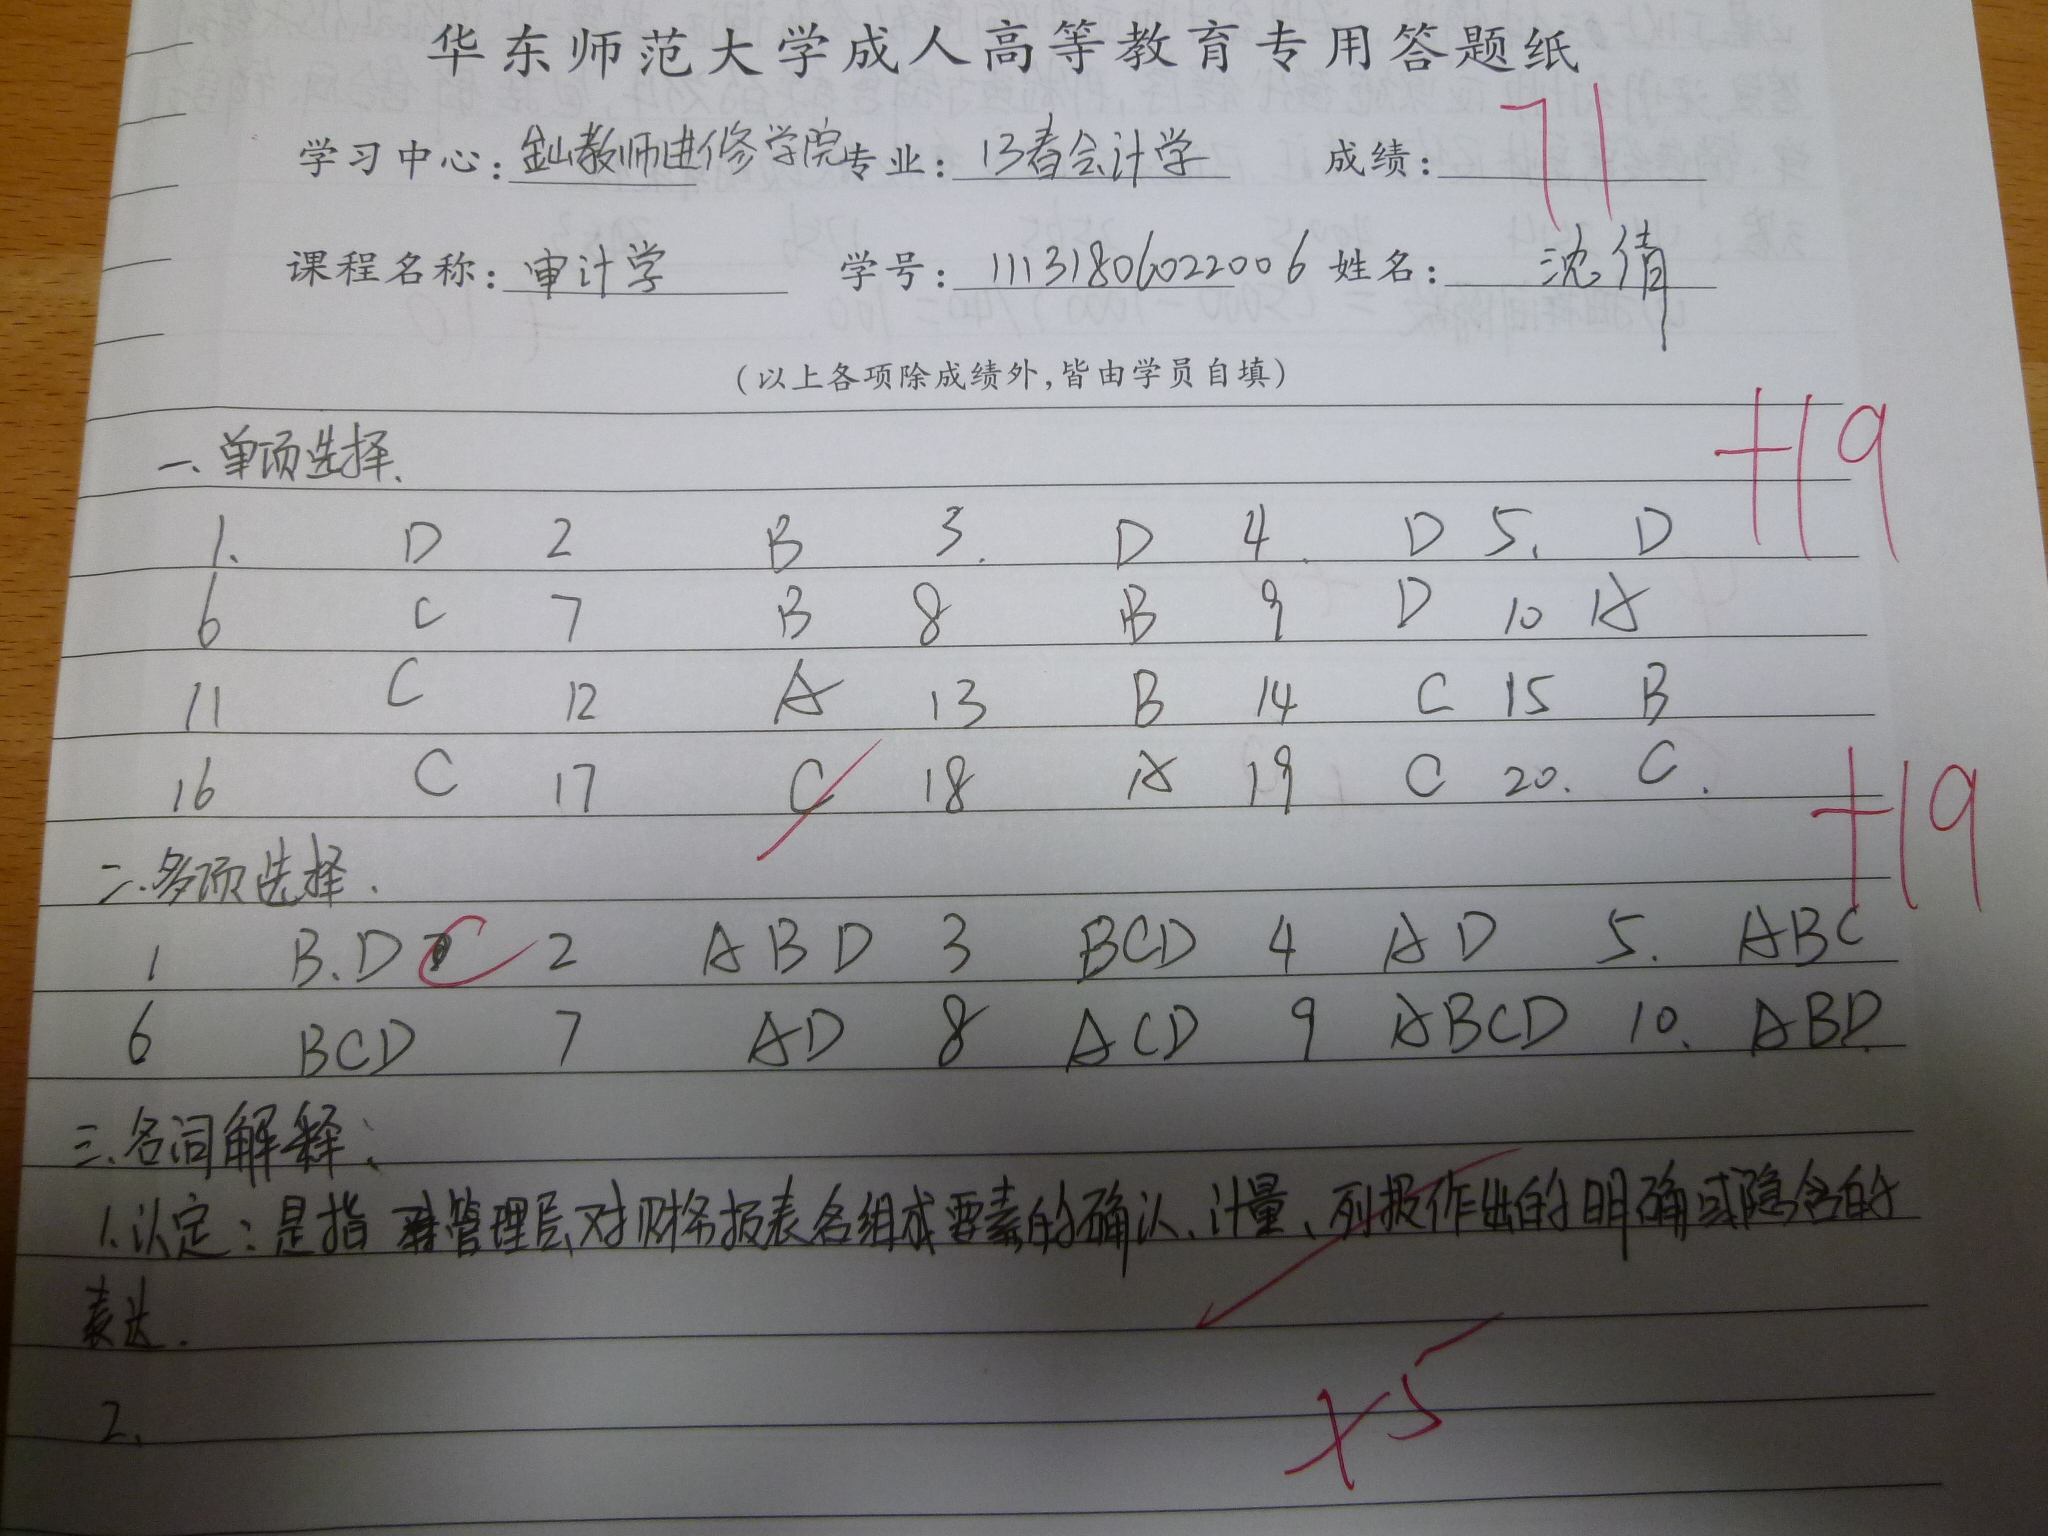 华东师范大学成人高等教育专用答题纸
学习中心:金山教师进修学院 专业: 13春会计学 成绩: 71
课程名称: 审计学 学号: 111318060022006 姓名: 沈倩
(以上各项除成绩外,皆由学员自填)
一、单项选择. +19
1. D 2 B 3. D 4. D 5. D
6 C 7 B 8 B 9 D 10 A
11 C 12 A 13 B 14 C 15 B
16 C 17 C 18 A 19 C 20. C.
二.多项选择. +19
1 B.D C 2 ABD 3 BCD 4 AD 5. ABC
6 BCD 7 AD 8 ACD 9 ABCD 10. ABD.
三.名词解释:
1.认定:是指管理层对财务报表各组成要素的确认、计量、列报作出的明确或隐含的
表达.
+5
2.